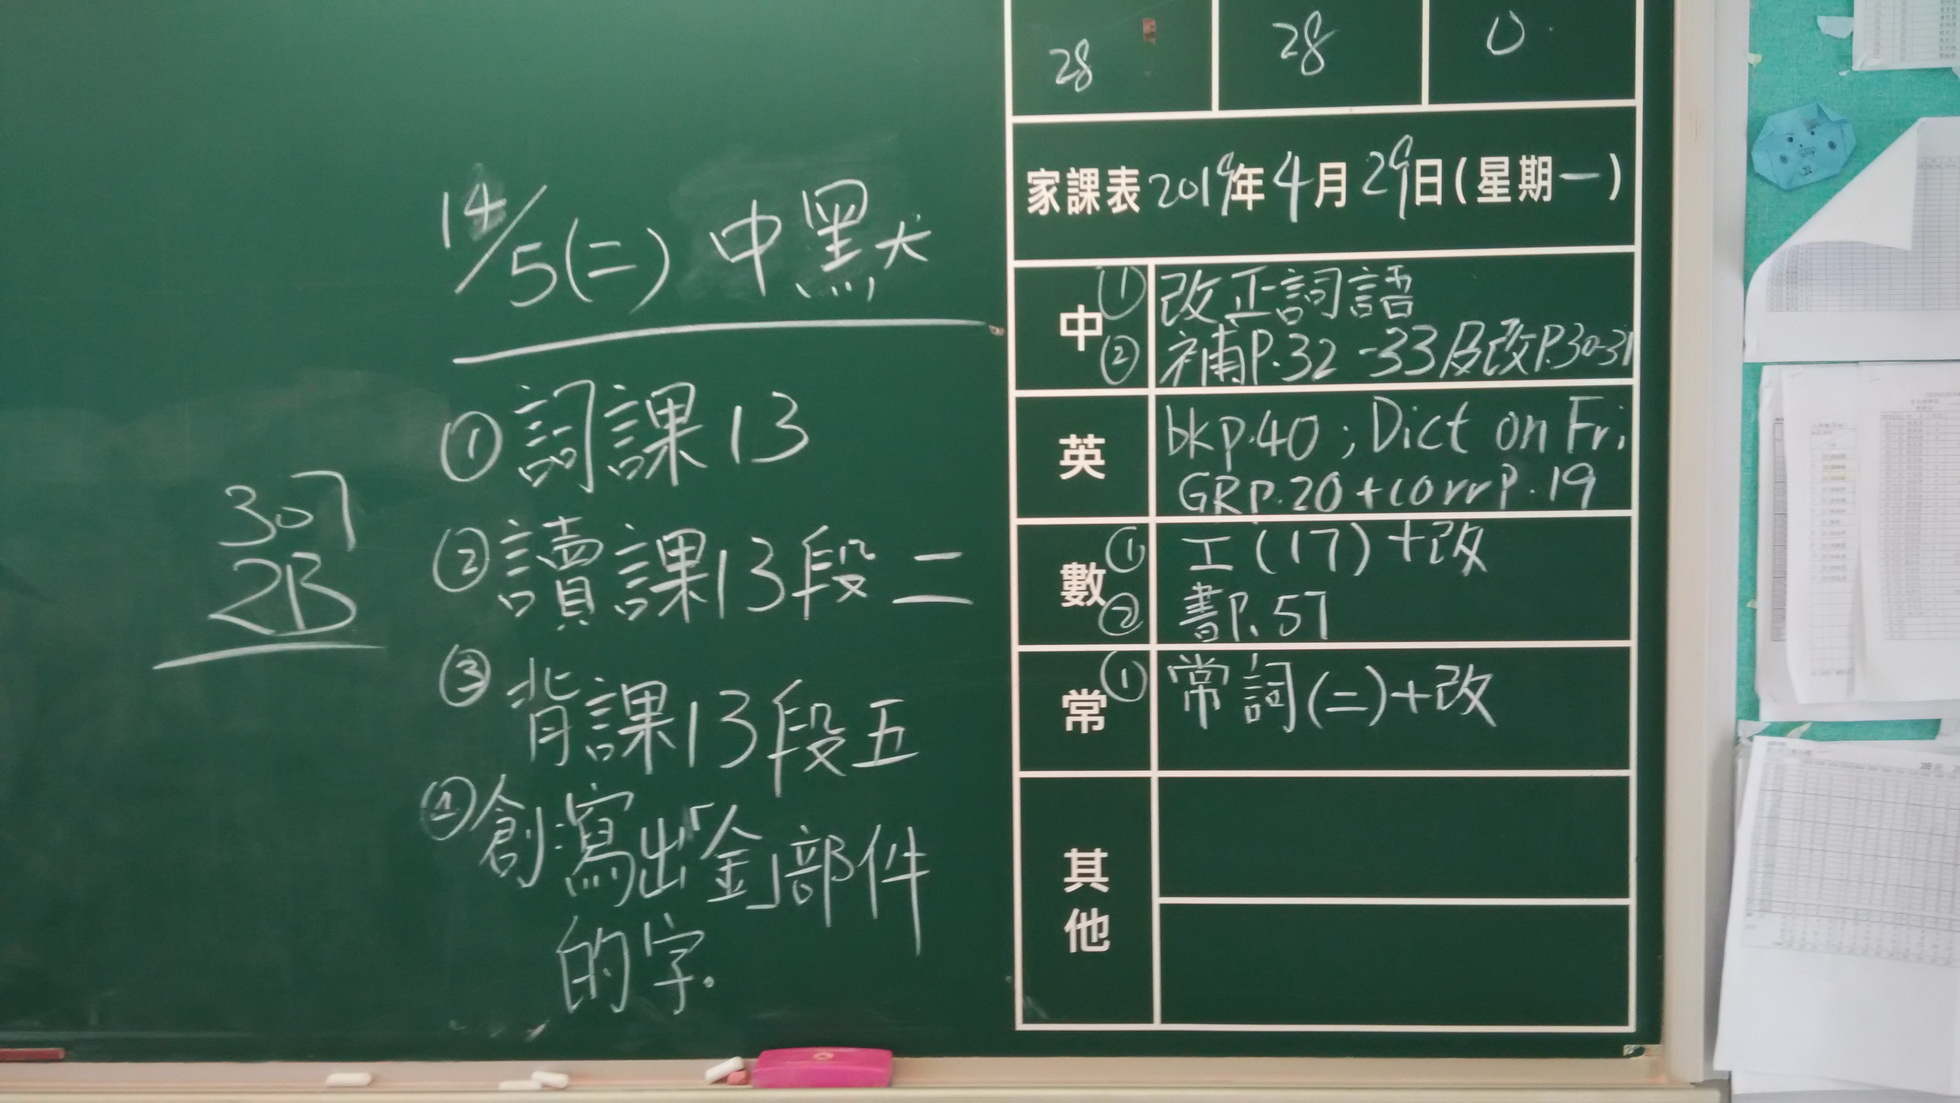 28 28 0
家課表2019年4月29日(星期一)
中 ① 改正詞語
② 補P.32-33及改P.30-31
英 bkp.40 ; Dict on Fri
GR p.20 + corr P.19
數 ① 工(17)+改
② 書P.57
常 ① 常詞(二)+改
其他
14/5(二) 中默
① 詞課13
② 讀課13段二
③ 背課13段五
④ 創寫出「金」部件
的字.
307
2B